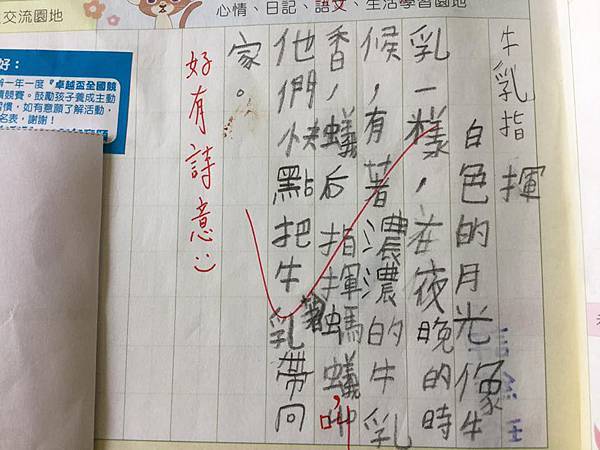 交流園地
心情、日記、語文、生活學習園地
好：
辦一年一度『卓越盃全國競
習慣，如有意願了解活動，
名表，謝謝！
牛乳指揮
白色的月光像牛
乳一樣，在夜晚的時
候，有著濃濃的牛乳
香，蟻后指揮螞蟻，叫
他們快點把牛乳帶回
家。
好有詩意